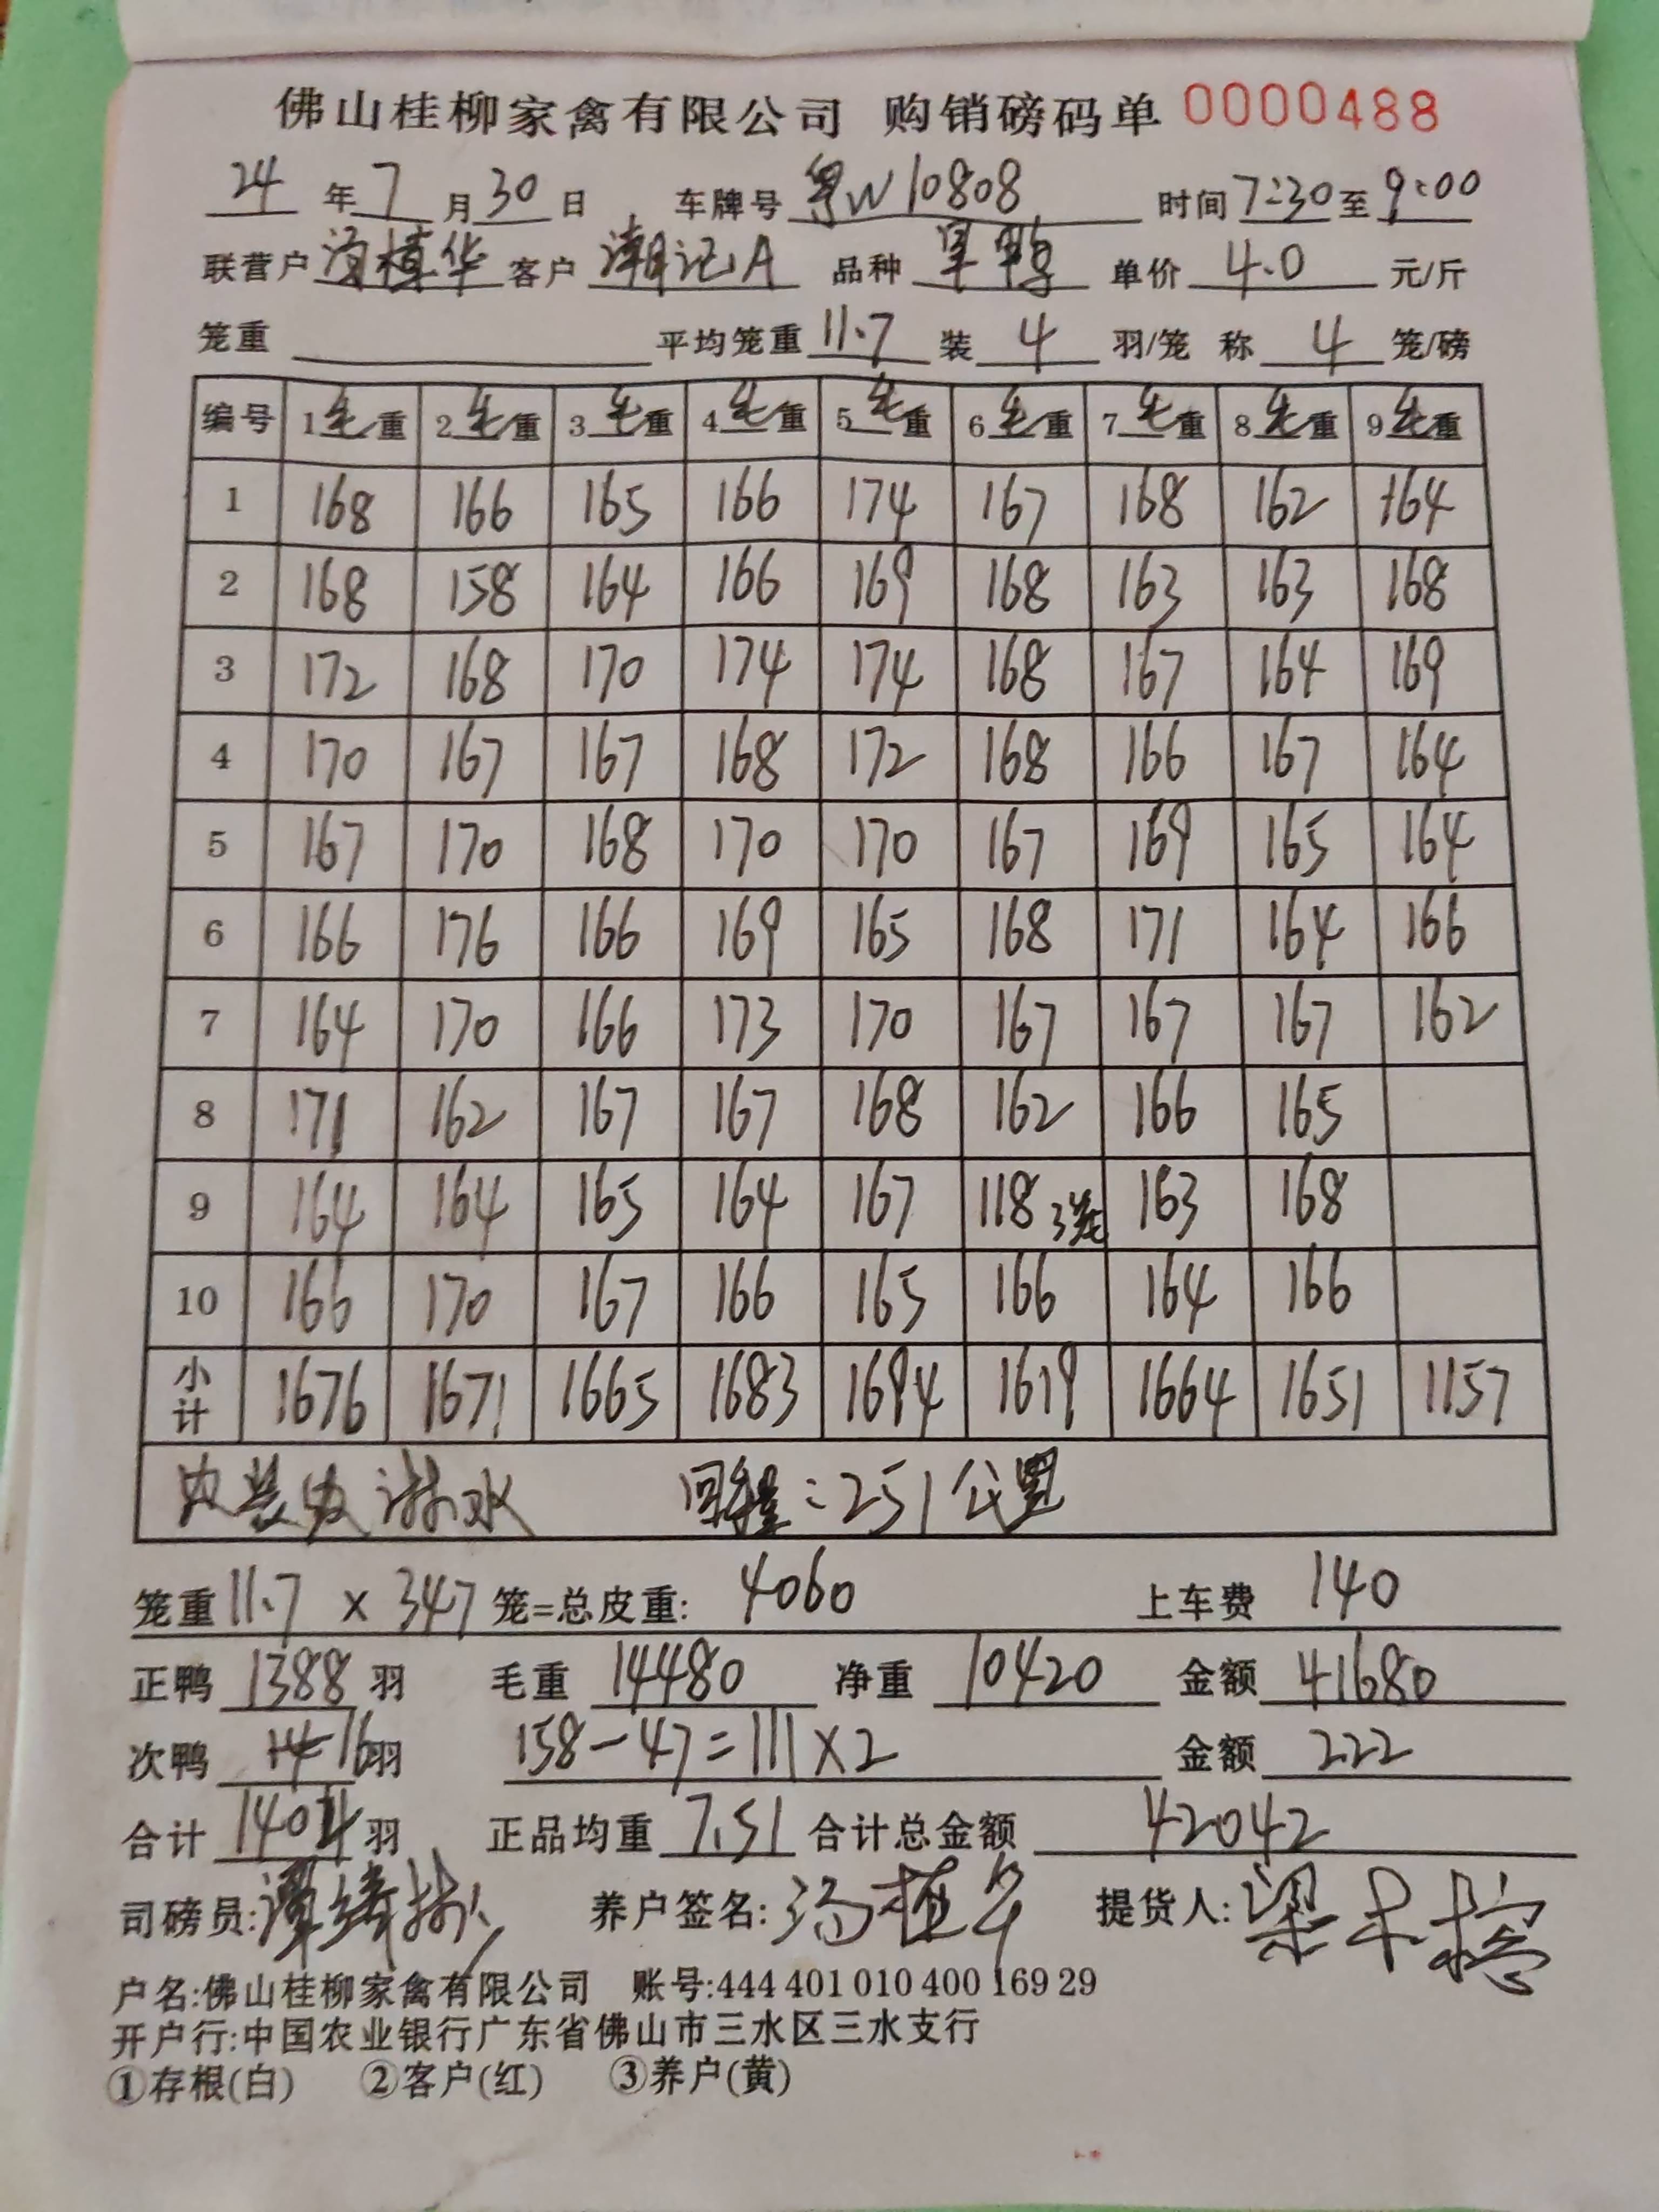 佛山桂柳家禽有限公司 购销磅码单 0000488
24 年 7 月 30 日 车牌号 粤W10808 时间 7:30 至 9:00
联营户 汤植华 客户 潮记A 品种 黑鸭 单价 4.0 元/斤
笼重 平均笼重 11.7 装 4 羽/笼 称 4 笼/磅
编号 1毛重 2毛重 3毛重 4毛重 5毛重 6毛重 7毛重 8毛重 9毛重
1 168 166 165 166 174 167 168 162 164
2 168 158 164 166 169 168 163 163 168
3 172 168 170 174 174 168 167 164 169
4 170 167 167 168 172 168 166 167 164
5 167 170 168 170 170 167 169 165 164
6 166 176 166 169 165 168 171 164 166
7 164 170 166 173 170 167 167 167 162
8 171 162 167 167 168 162 166 165
9 164 164 165 164 167 118 3笼 163 168
10 166 170 167 166 165 166 164 166
小计 1676 1671 1665 1683 1694 1619 1664 1651 1157
淋水 回程:251公里
笼重 11.7 x 347 笼=总皮重: 4060 上车费 140
正鸭 1388 羽 毛重 14480 净重 10420 金额 41680
次鸭 16羽 158-47=111×2 金额 222
合计 1404 羽 正品均重 7.51 合计总金额 42042
司磅员: 养户签名: 汤植华 提货人:
户名:佛山桂柳家禽有限公司 账号:444 401 010 400 169 29
开户行:中国农业银行广东省佛山市三水区三水支行
①存根(白) ②客户(红) ③养户(黄)